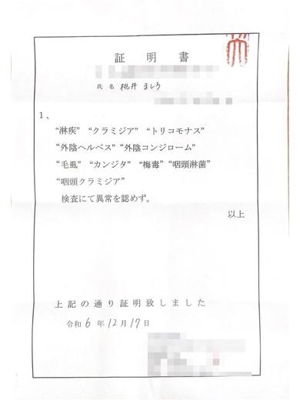 証明書
氏名 桃井 ましろ
1、
“淋疾” “クラミジア” “トリコモナス”
“外陰ヘルペス” “外陰コンジローム”
“毛虱” “カンジタ” “梅毒” “咽頭淋菌”
“咽頭クラミジア”
検査にて異常を認めず。
以上
上記の通り証明致しました
令和6年12月17日